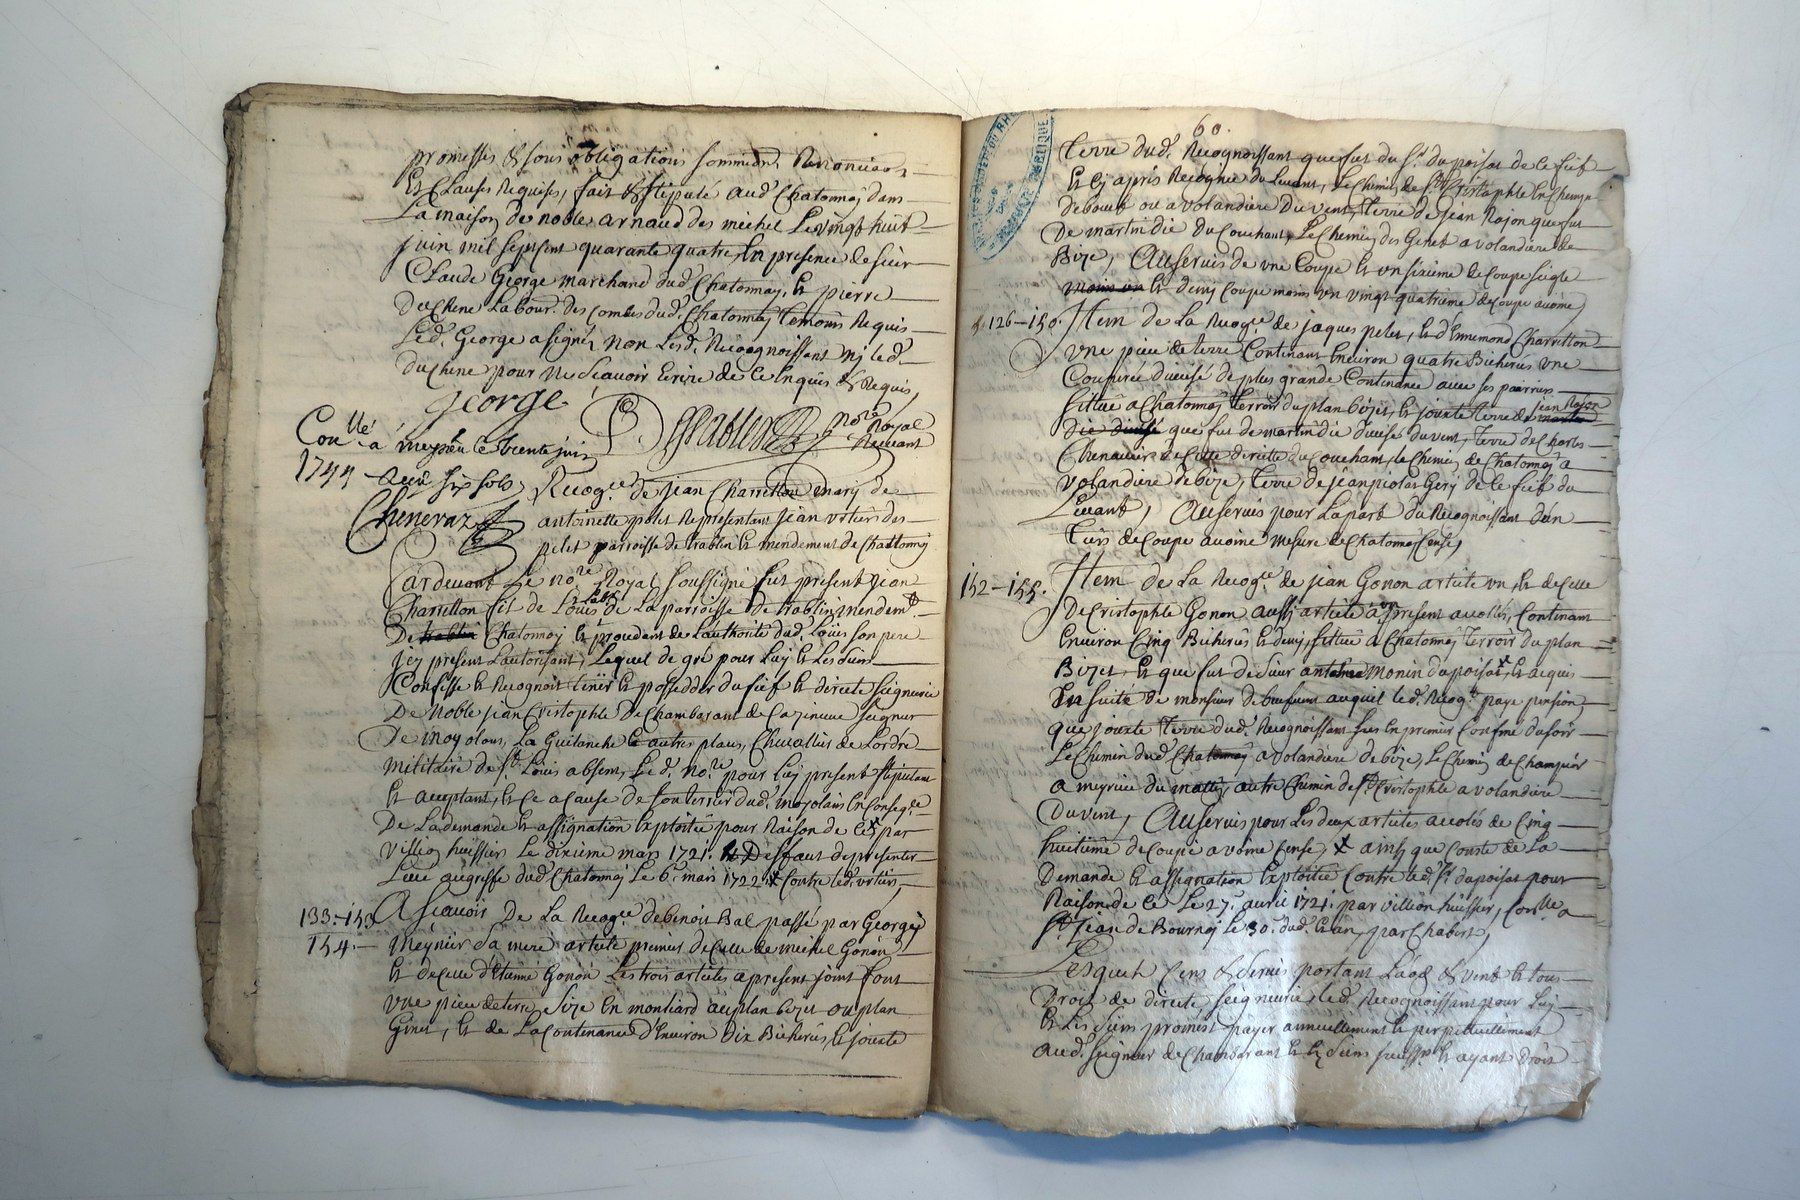 promesses & sous obligations soummions. Renonciaons
Et Clauses Requises, fait & stipulé aud. Chatonnay dans
La maison de noble arnaud des michel Le vingt huit
juin mil sept cent quarante quatre, En presence de sieur
Claude George marchand dud. Chatonnay, Et pierre
Duchene Labour. des Combes dud. Chatonnay temoins Requis
Led. George a signé, non Lesd. Recognoissant nj led.
duchene pour ne sçavoir Ecrire de ce Enquis & Requis,
George
nore Royal
Recevant
Conllé a meyrieu le trente juin
1744 Reçu six sols,
Cheneraz
Recogce de jean Charreton mary de
antoinette pelet Representant jean
pelet parroisse de trablin Et mendement de Chattonnay
Pardevant Le nore Royal soussigné fut present jean
Charretton fils de Loüis labr de La parroisse de trablin mendemt
De trablin Chatonnay Et procedant de Lauthorité dud. Loüis son pere
jcy present Lautorisant, Lequel de gré pour Luy Et Les siens
Confesse Et Recognoit tenir Et posseder du fief Et directe seigneurie
De Noble jean Cristophle De Chambarant de Cazineuve seigneur
De moyolans, La Guilanche Et autres places, Chevallier de Lordre
militaire de St Loüis absent, Led. nore pour Luy present stipulant
Et acceptant, Et ce a Cause de son terrier dud. moyolans En Conseqce
De La demande Et assignation Exploitée pour Raison de ce x par
Villion huissier Le dixieme mars 1721. Deffaut de presenter
Levé au greffe dud. Chatonnay Le 6e mars 1722 x Contre led.
133-153
154.-
A sçavoir De La Recogce de benoit Bal passé par George
meynier Sa mere article premier de Celle de michel Gonon
Et de celle d'Etienne Gonon Les trois articles a present joint font
Vne piece de terre, size En montiard au plan bizet ou plan
Ginet, Et de La Continance d'Environ dix Bicherées, Et jouxte
60.
terre dud. Recognoissant que fut du Sr. dupoisat de ce fief
Et cy aprés Recognue du Levant, Le Chemin de St Cristophle En
de bout ou a volandiere du vent, terre de jean Rojon que fut
De martin die du Couchant, Le Chemin des Ginet a volandiere de
Bize, Au servis de vne Coupe Et vn sixieme de Coupe seigle
moins un Et demy Coupe moins vn vingt quatrieme de Coupe avoine,
126-150.
Item de La Recogce de jaques pelet, Et d'Ennemond Charretton
Vne piece de terre Contenant Environ quatre Bicherées vne
Couperée divisé de plus grande Continance avec ses
Sittué a Chatonnay terroir du plan bizet, Et jouxte terre de jean Rojon
que fut de martin die divise du vent, terre de Charles
Chenavier de cette directe du Couchant, le Chemin de Chatonnay a
volandiere de bize, terre de jean nicolas Gerj de ce fief du
Levant, Au servis pour La part du Recognoissant d'un
tiers de Coupe avoine mesure de Chatonnay Cense,
152-155.
Item de La Recogce de jean Gonon article vn, Et de Celle
De Cristophle Gonon aussi article vn a present accollés, Contenant
Environ Cinq Bicherées Et demy, sittué a Chatonnay terroir du plan
Bizet, Et que fut de sieur monin dupoisat x Et acquis
En suitte de monsieur de auquel led. Recogt paye pension
que jouxte terre dud. Recognoissant sus En premier Confiné du soir
Le Chemin dud. Chatonnay a volandiere de bize, Le Chemin de Champier
a meyrieu du matin, autre Chemin de St Cristophle a volandiere
Du vent, Au servis pour Les deux articles accolés de Cinq
huitieme de Coupe avoine Cense, x ainsj que Conste de La
Demande Et assignation Exploitée Contre led. Sr dupoisat pour
Raison de ce Le 27e avril 1721. par Villion huissier, Conlle a
St jean de Bournay le 30. dud. Et an, par Chabert,
Lesquels Cens & servis portant Laod & vent Et tous
Droit de directe, seigneurie, led. Recognoissant pour Luy
Et Les siens promest payer annuellement Et perpetuellement
aud. seigneur de Chambarant Et Es siens Et ayant Droit